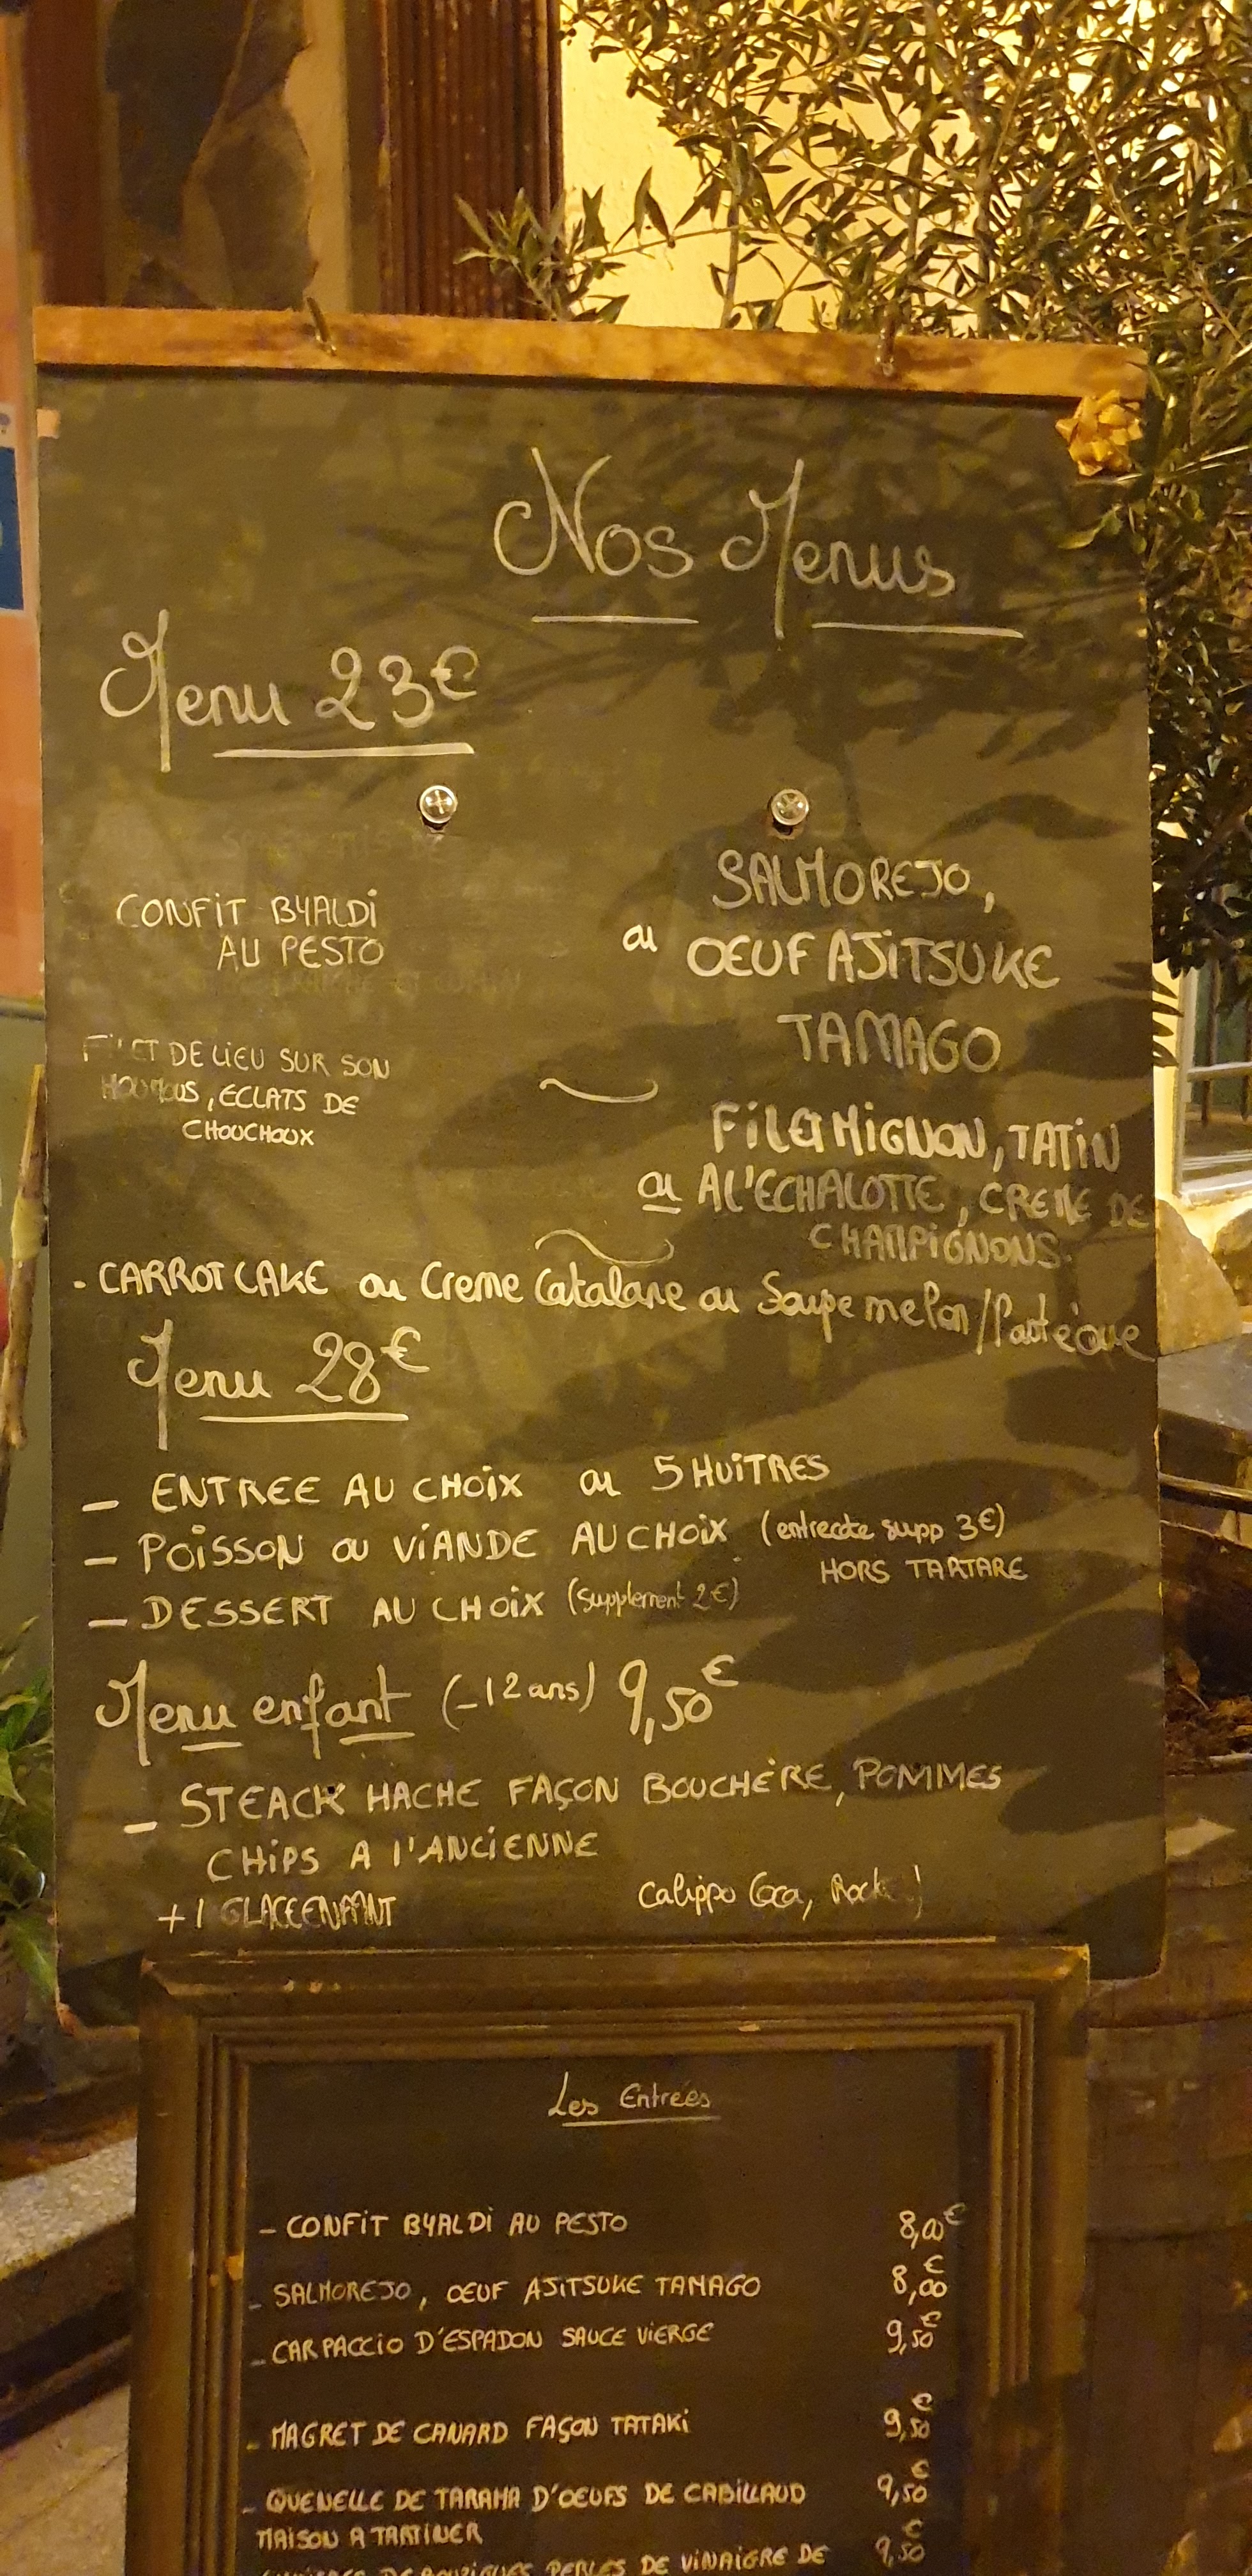 Nos Menus
Menu 23€
CONFIT BYALDI
AU PESTO
ou
SALMOREJO,
OEUF AJITSUKE
TAMAGO
FILET DE LIEU SUR SON
HOUMOUS, ECLATS DE
CHOUCHOUX
ou
FILET MIGNON, TATIN
A L'ECHALOTTE, CREME DE
CHAMPIGNONS.
- CARROT CAKE ou Creme Catalane ou Soupe melon/Pastèque
Menu 28€
- ENTREE AU CHOIX ou 5 HUITRES
- POISSON OU VIANDE AU CHOIX (entrecote supp 3€)
HORS TARTARE
- DESSERT AU CHOIX (supplement 2€)
Menu enfant (-12 ans) 9,50€
- STEACK HACHE FAÇON BOUCHERE, POMMES
CHIPS A l'ANCIENNE
+ 1 GLACE ENFANT Calippo Coca,
Les Entrées
- CONFIT BYALDI AU PESTO 8,00€
- SALMOREJO, OEUF AJITSUKE TAMAGO 8,00€
- CARPACCIO D'ESPADON SAUCE VIERGE 9,50€
- MAGRET DE CANARD FAÇON TATAKI 9,50€
- QUENELLE DE TARAMA D'OEUFS DE CABILLAUD 9,50€
MAISON A TARTINER
DE BOUZIGUES PERLES DE VINAIGRE DE 9,50€